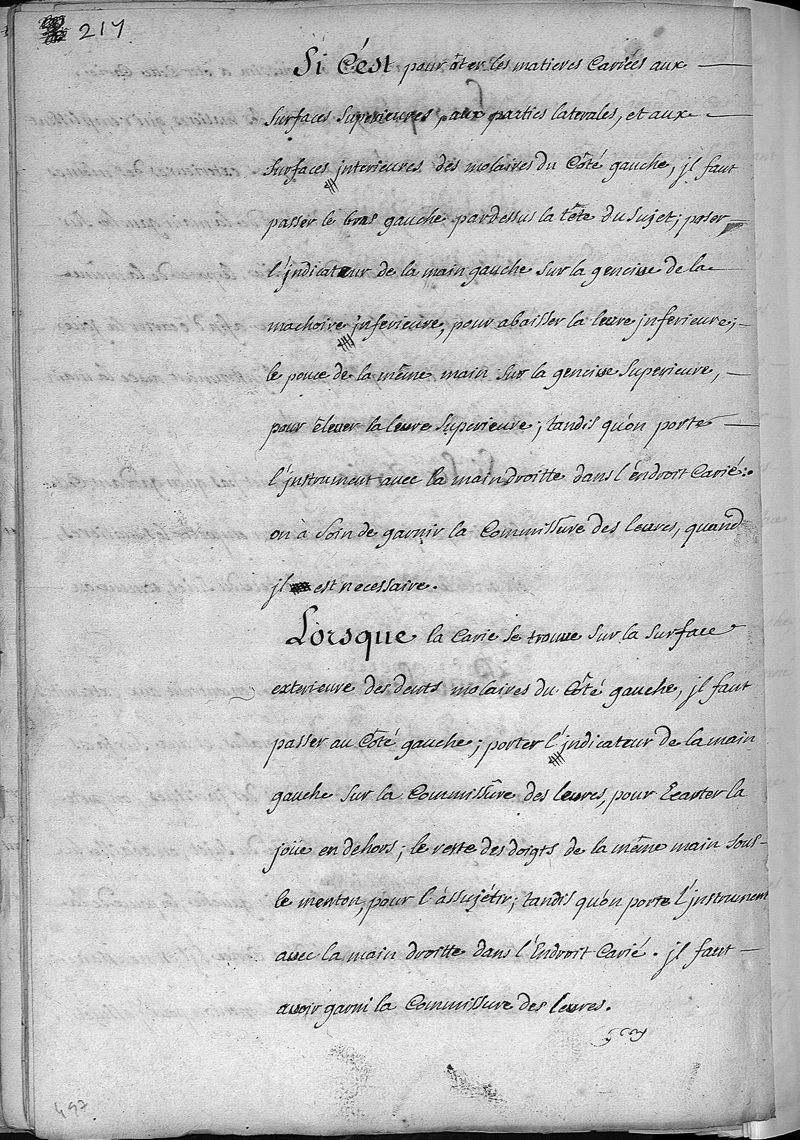 217
Si C'est pour ôter les matieres Cariées aux
Surfaces Superieures, aux parties laterales, et aux
Surfaces jnterieures des molaires du Côté gauche, jl faut
passer le bras gauche pardessus la tête du Sujet; poser
l'jndicateur de la main gauche sur la gencive de la
machoire jnferieure, pour abaisser la levre jnferieure;
le pouce de la même main sur la gencive Superieure,
pour élever la levre Superieure; tandis qu'on porte
l'jnstrument avec la main droitte dans l'endroit Carié:
on à Soin de garnir la Commissure des levres, quand
jl est necessaire.
Lorsque la Carie se trouve sur la surface
exterieure des dents molaires du Côté gauche, jl faut
passer au Côté gauche; porter l'jndicateur de la main
gauche sur la Commissure des levres, pour Ecarter la
joüe en dehors; le reste des doigts de la même main sous
le menton, pour l'assujétir; tandis qu'on porte l'jnstrument
avec la main droitte dans l'Endroit Carié. jl faut
avoir garni la Commissure des levres.
497